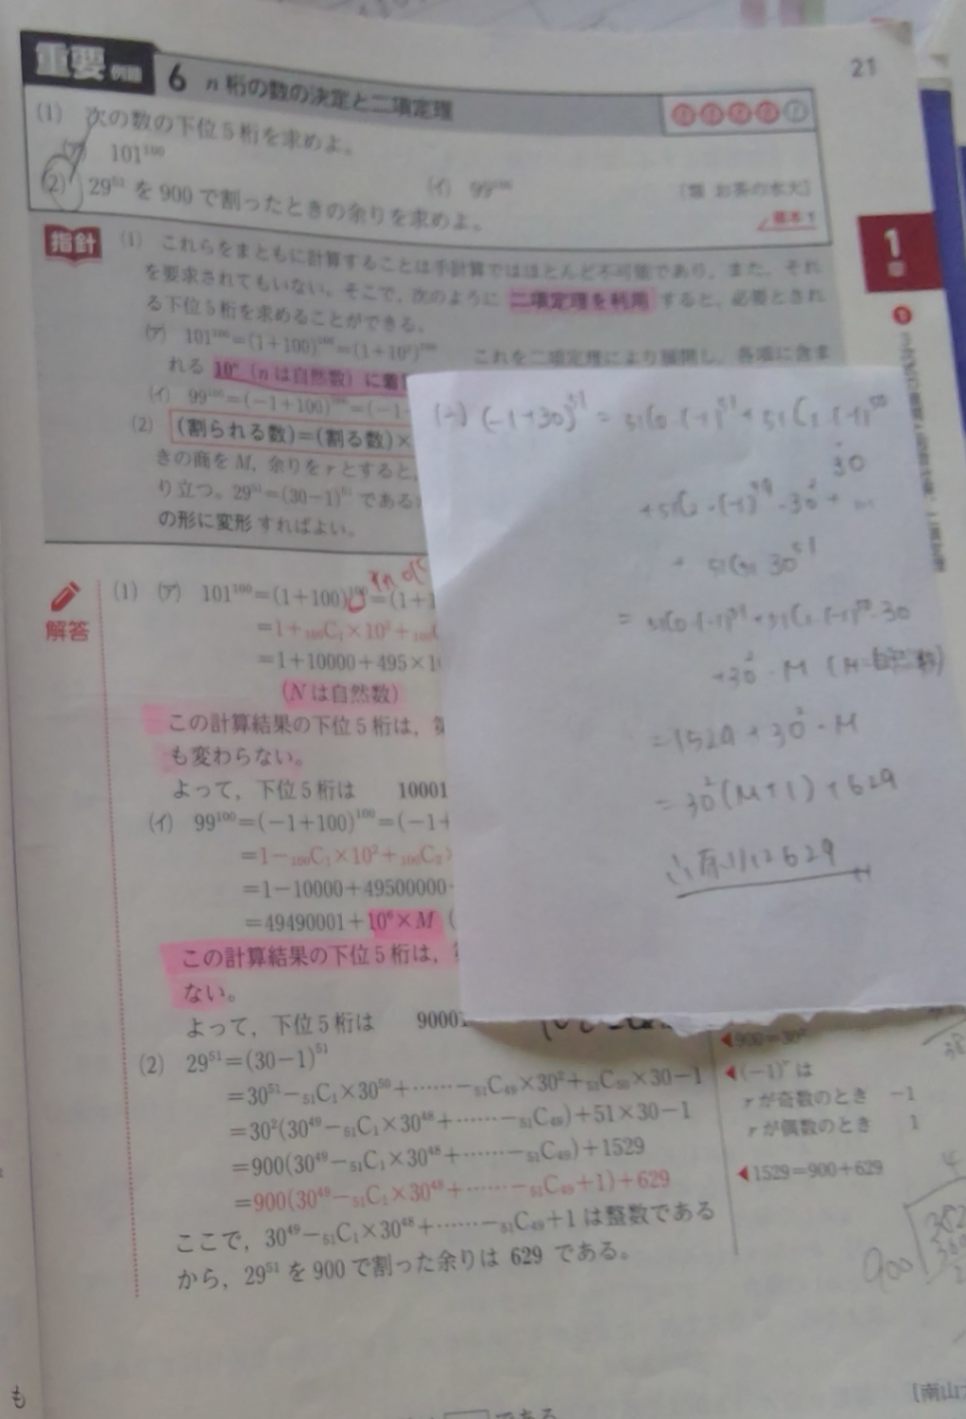 21
重要 例題 6 n桁の数の決定と二項定理
(1) 次の数の下位5桁を求めよ。
(ア) 101¹⁰⁰ (イ) 99¹⁰⁰ 〔類 お茶の水大〕
(2) 29⁵¹を900で割ったときの余りを求めよ。
基本 1
指針 (1) これらをまともに計算することは手計算ではほとんど不可能であり，また，それ
を要求されてもいない。そこで，次のように 二項定理を利用 すると，必要とされ
る下位5桁を求めることができる。
(ア) 101¹⁰⁰=(1+100)¹⁰⁰=(1+10²)¹⁰⁰ これを二項定理により展開し，各項に含ま
れる 10ⁿ (nは自然数)に着
(イ) 99¹⁰⁰=(-1+100)¹⁰⁰=(-1
(2) (割られる数)=(割る数)×
きの商をM，余りをrとすると，
り立つ。29⁵¹=(30-1)⁵¹である
の形に変形すればよい。
1
章
解答
(1) (ア) 101¹⁰⁰=(1+100)¹⁰⁰=(1+1
=1+₁₀₀C₁×10²+₁₀₀
=1+10000+495×1
(Nは自然数)
この計算結果の下位5桁は，第
も変わらない。
よって，下位5桁は 10001
(イ) 99¹⁰⁰=(-1+100)¹⁰⁰=(-1+
=1-₁₀₀C₁×10²+₁₀₀C₂
=1-10000+49500000
=49490001+10⁶×M (
この計算結果の下位5桁は，
ない。
よって，下位5桁は 90001
(2) 29⁵¹=(30-1)⁵¹
=30⁵¹-₅₁C₁×30⁵⁰+……-₅₁C₄₉×30²+₅₁C₅₀×30-1
=30²(30⁴⁹-₅₁C₁×30⁴⁸+……-₅₁C₄₉)+51×30-1
=900(30⁴⁹-₅₁C₁×30⁴⁸+……-₅₁C₄₉)+1529
=900(30⁴⁹-₅₁C₁×30⁴⁸+……-₅₁C₄₉+1)+629
ここで，30⁴⁹-₅₁C₁×30⁴⁸+……-₅₁C₄₉+1は整数である
から，29⁵¹を900で割った余りは 629 である。
◀900=30²
◀(-1)ʳは
rが奇数のとき -1
rが偶数のとき 1
◀1529=900+629
(-1+30)⁵¹ = ₅₁C₀·(-1)⁵¹+₅₁C₁·(-1)⁵⁰
·30
+₅₁C₂·(-1)⁴⁹·30²+…
+ ₅₁C₅₁ 30⁵¹
= ₅₁C₀·(-1)⁵¹+₅₁C₁·(-1)⁵⁰·30
+30²·M (M=自然数)
=1529+30²·M
=30²(M+1)+629
∴余りは629
900
[南山
も
である